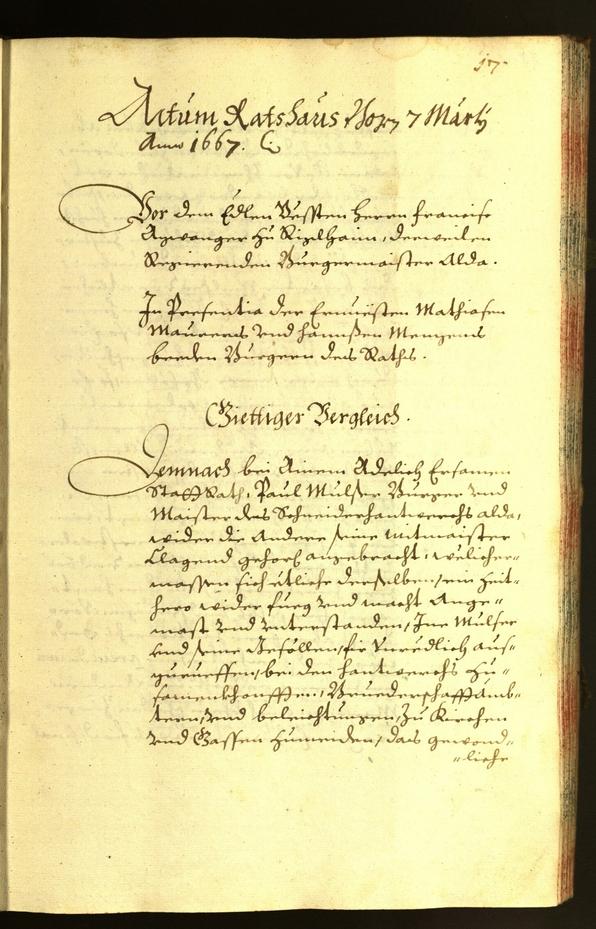 17
Actum Ratshaus Bozn 7 Marty
Anno 1667.
Vor dem Edlen Vessten Herrn Francisc
Azwanger zu Rizelhaim, derweilen
Regierenden Burgermaister Alda.
In Presentia der Ernuesten Mathiasen
Maurers vnd Hannsen Menzens
beeden Burgern des Raths.
Giettiger Vergleich.
Demnach bei Ainem Adelich Ersamen
Statt Rath, Paul Mulser Burger vnd
Maister des Schneiderhantwerchs alda,
wider die Andere seine Mitmaister
Clagend gehors angebracht, welicher=
massen sich etliche derselben, ein Zeit=
hero wider fueg vnd macht Ange=
mast vnd vnterstanden, Ine Mulser
vnd seine Gesöllen, für Vnredlich aus=
zurueffen, bei den hantwerchs Zu=
samenkhonfften, Bruederschafft Amb=
tern, vnd beleichtungen, zu Kirchen
vnd Gassen zumeiden, das gewond=
=liche